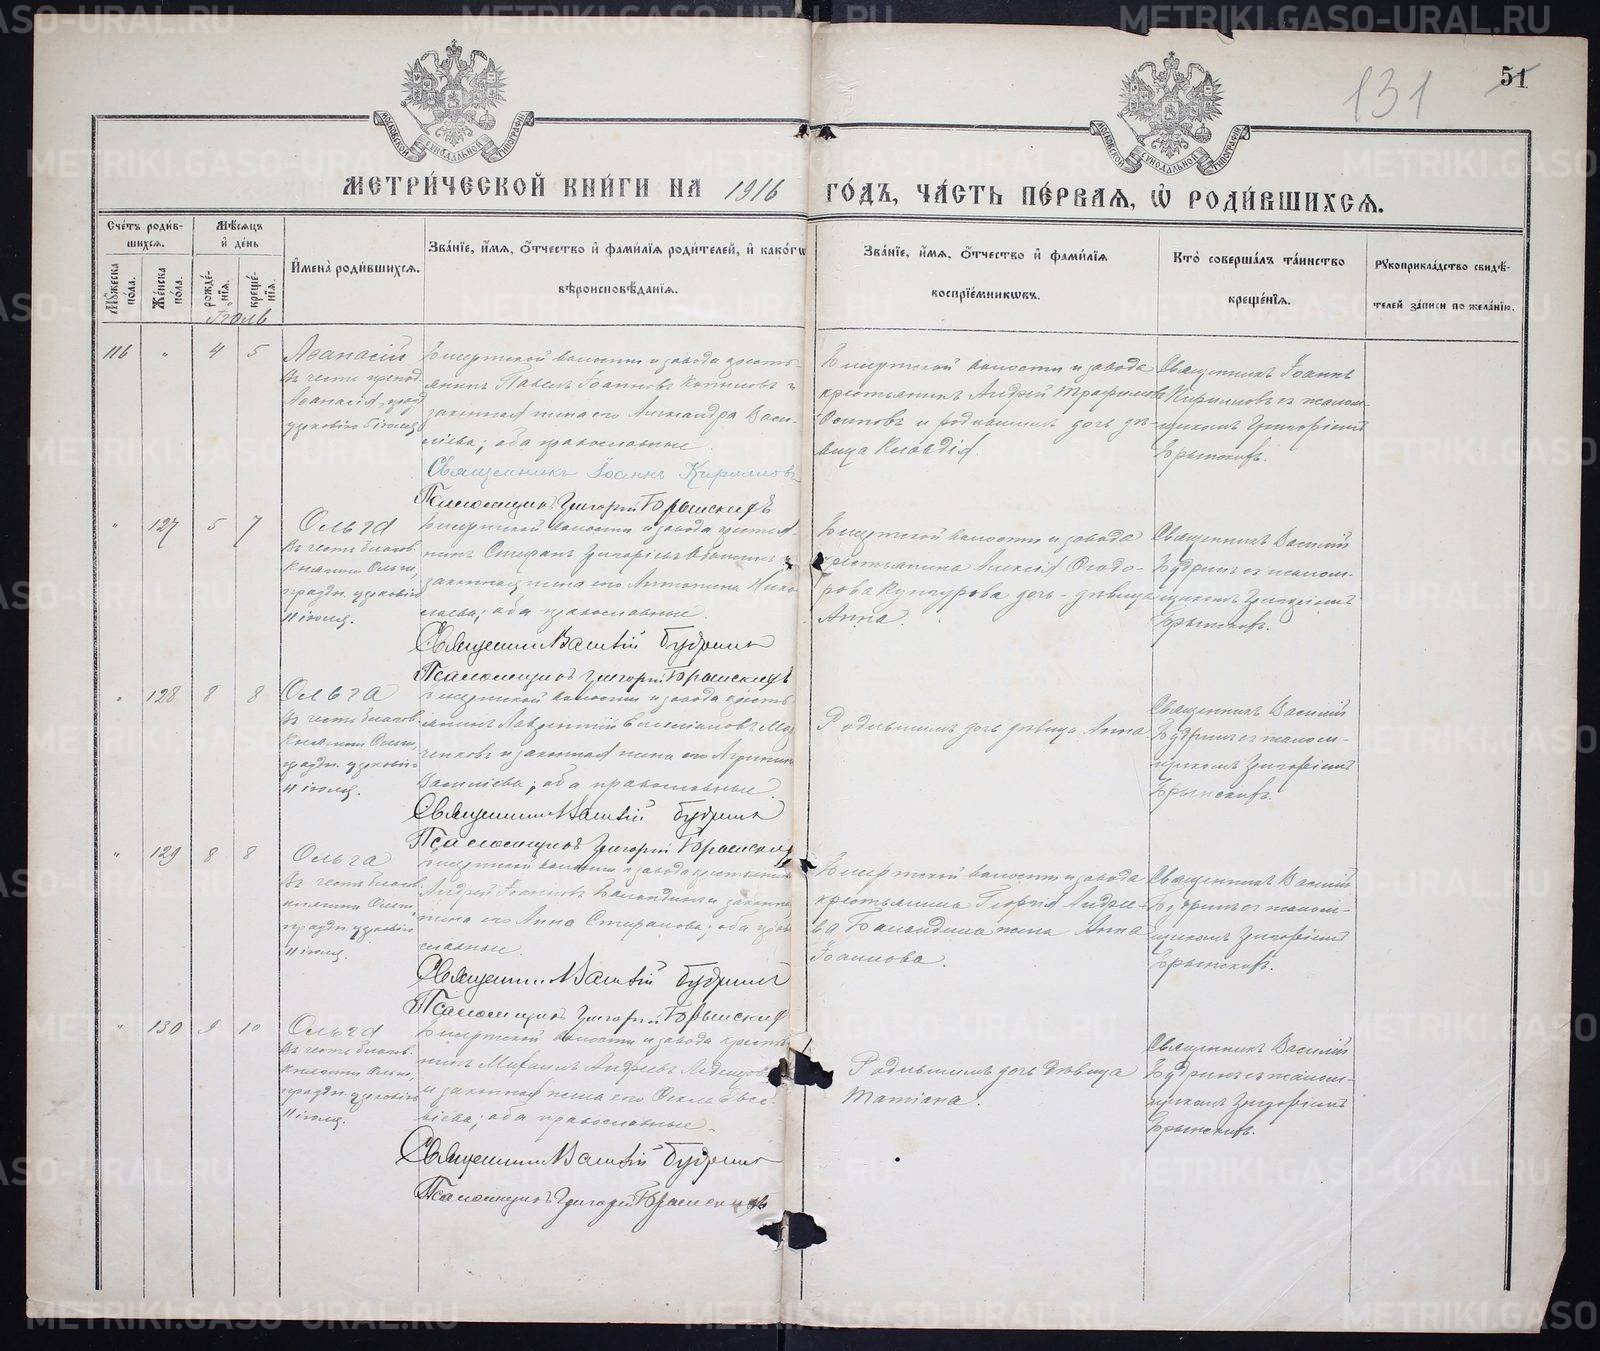 131 51
МЕТРИ́ЧЕСКОЙ КНИ́ГИ НА 1916 ГО́ДЪ, ЧА́СТЬ ПЕ́РВАЯ, Ѡ РОДИ́ВШИХСЯ.
Сче́тъ роди́в-
шихся.
Мꙋ́жеска по́ла.
Же́нска по́ла.
Мѣ́сяцъ
и де́нь
рожде́-
нїя.
креще́-
нїя.
Имена̀ роди́вшихся.
Зва́нїе, и́мя, о́тчество и фами́лїя роди́телей, и како́гѡ
вѣроисповѣ́данїя.
Зва́нїе, и́мя, о́тчество и фами́лїя
воспрїе́мникѡвъ.
Кто̀ соверша́лъ та́инство
креще́нїя.
Рꙋкоприкла́дство свидѣ́-
телей за́писи по жела́нїю.
Іюль
116 " 4 5
Аѳанасій
Въ честь препод.
Аѳанасія, празд.
церковію 5 іюля
Бисертской волости и завода кресть-
янинъ Павелъ Іоанновъ Копыловъ и
законная жена его Александра Васи-
ліева; оба православные.
Священникъ Іоаннъ Кирилловъ
Псаломщикъ Григорій Брынскихъ
Бисертской волости и завода
крестьянинъ Андрей Трофимовъ
Осиповъ и родившихъ дочь дѣ-
вица Клавдія.
Священникъ Іоаннъ
Кирилловъ съ псалом-
щикомъ Григоріемъ
Брынскихъ.
" 127 5 7
Ольга
Въ честь благов.
Княгини Ольги,
праздн. церковію
11 іюля.
Бисертской волости и завода крестья-
нинъ Стефанъ Григорьевъ
законная жена его Антонина Нико-
лаева; оба православные.
Священникъ Василій Будринъ
Псаломщикъ Григорій Брынскихъ
Бисертской волости и завода
крестьянина Алексія Ѳеодо-
рова Кунгурова дочь - дѣвица
Анна.
Священникъ Василій
Будринъ съ псалом-
щикомъ Григоріемъ
Брынскихъ.
" 128 8 8
Ольга
Въ честь благов.
Княгини Ольги,
праздн. церковію
11 іюля.
Бисертской волости и завода кресть-
янинъ Лаврентій
и законная жена его Агриппина
Василіева; оба православные.
Священникъ Василій Будринъ
Псаломщикъ Григорій Брынскихъ
Родившихъ дочь дѣвица Анна
Священникъ Василій
Будринъ съ псалом-
щикомъ Григоріемъ
Брынскихъ.
" 129 8 8
Ольга
Въ честь благов.
княгини Ольги,
праздн. церковію
11 іюля.
Бисертской волости и завода крестьянинъ
Андрей Іоанновъ Баландинъ и законная
жена его Анна Стефанова; оба право-
славные.
Священникъ Василій Будринъ
Псаломщикъ Григорій Брынскихъ
Бисертской волости и завода
крестьянина Георгія Андрее-
ва Баландина жена Анна
Іоаннова.
Священникъ Василій
Будринъ съ псалом-
щикомъ Григоріемъ
Брынскихъ.
" 130 9 10
Ольга
Въ честь благов.
княгини Ольги,
праздн. церковію
11 іюля.
Бисертской волости и завода кресть-
нинъ Михаилъ Андреевъ
и законная жена его Ѳекла Евсе-
віева; оба православные.
Священникъ Василій Будринъ
Псаломщикъ Григорій Брынскихъ
Родившихъ дочь дѣвица
Татіана.
Священникъ Василій
Будринъ съ псалом-
щикомъ Григоріемъ
Брынскихъ.
METRIKI.GASO-URAL.RU